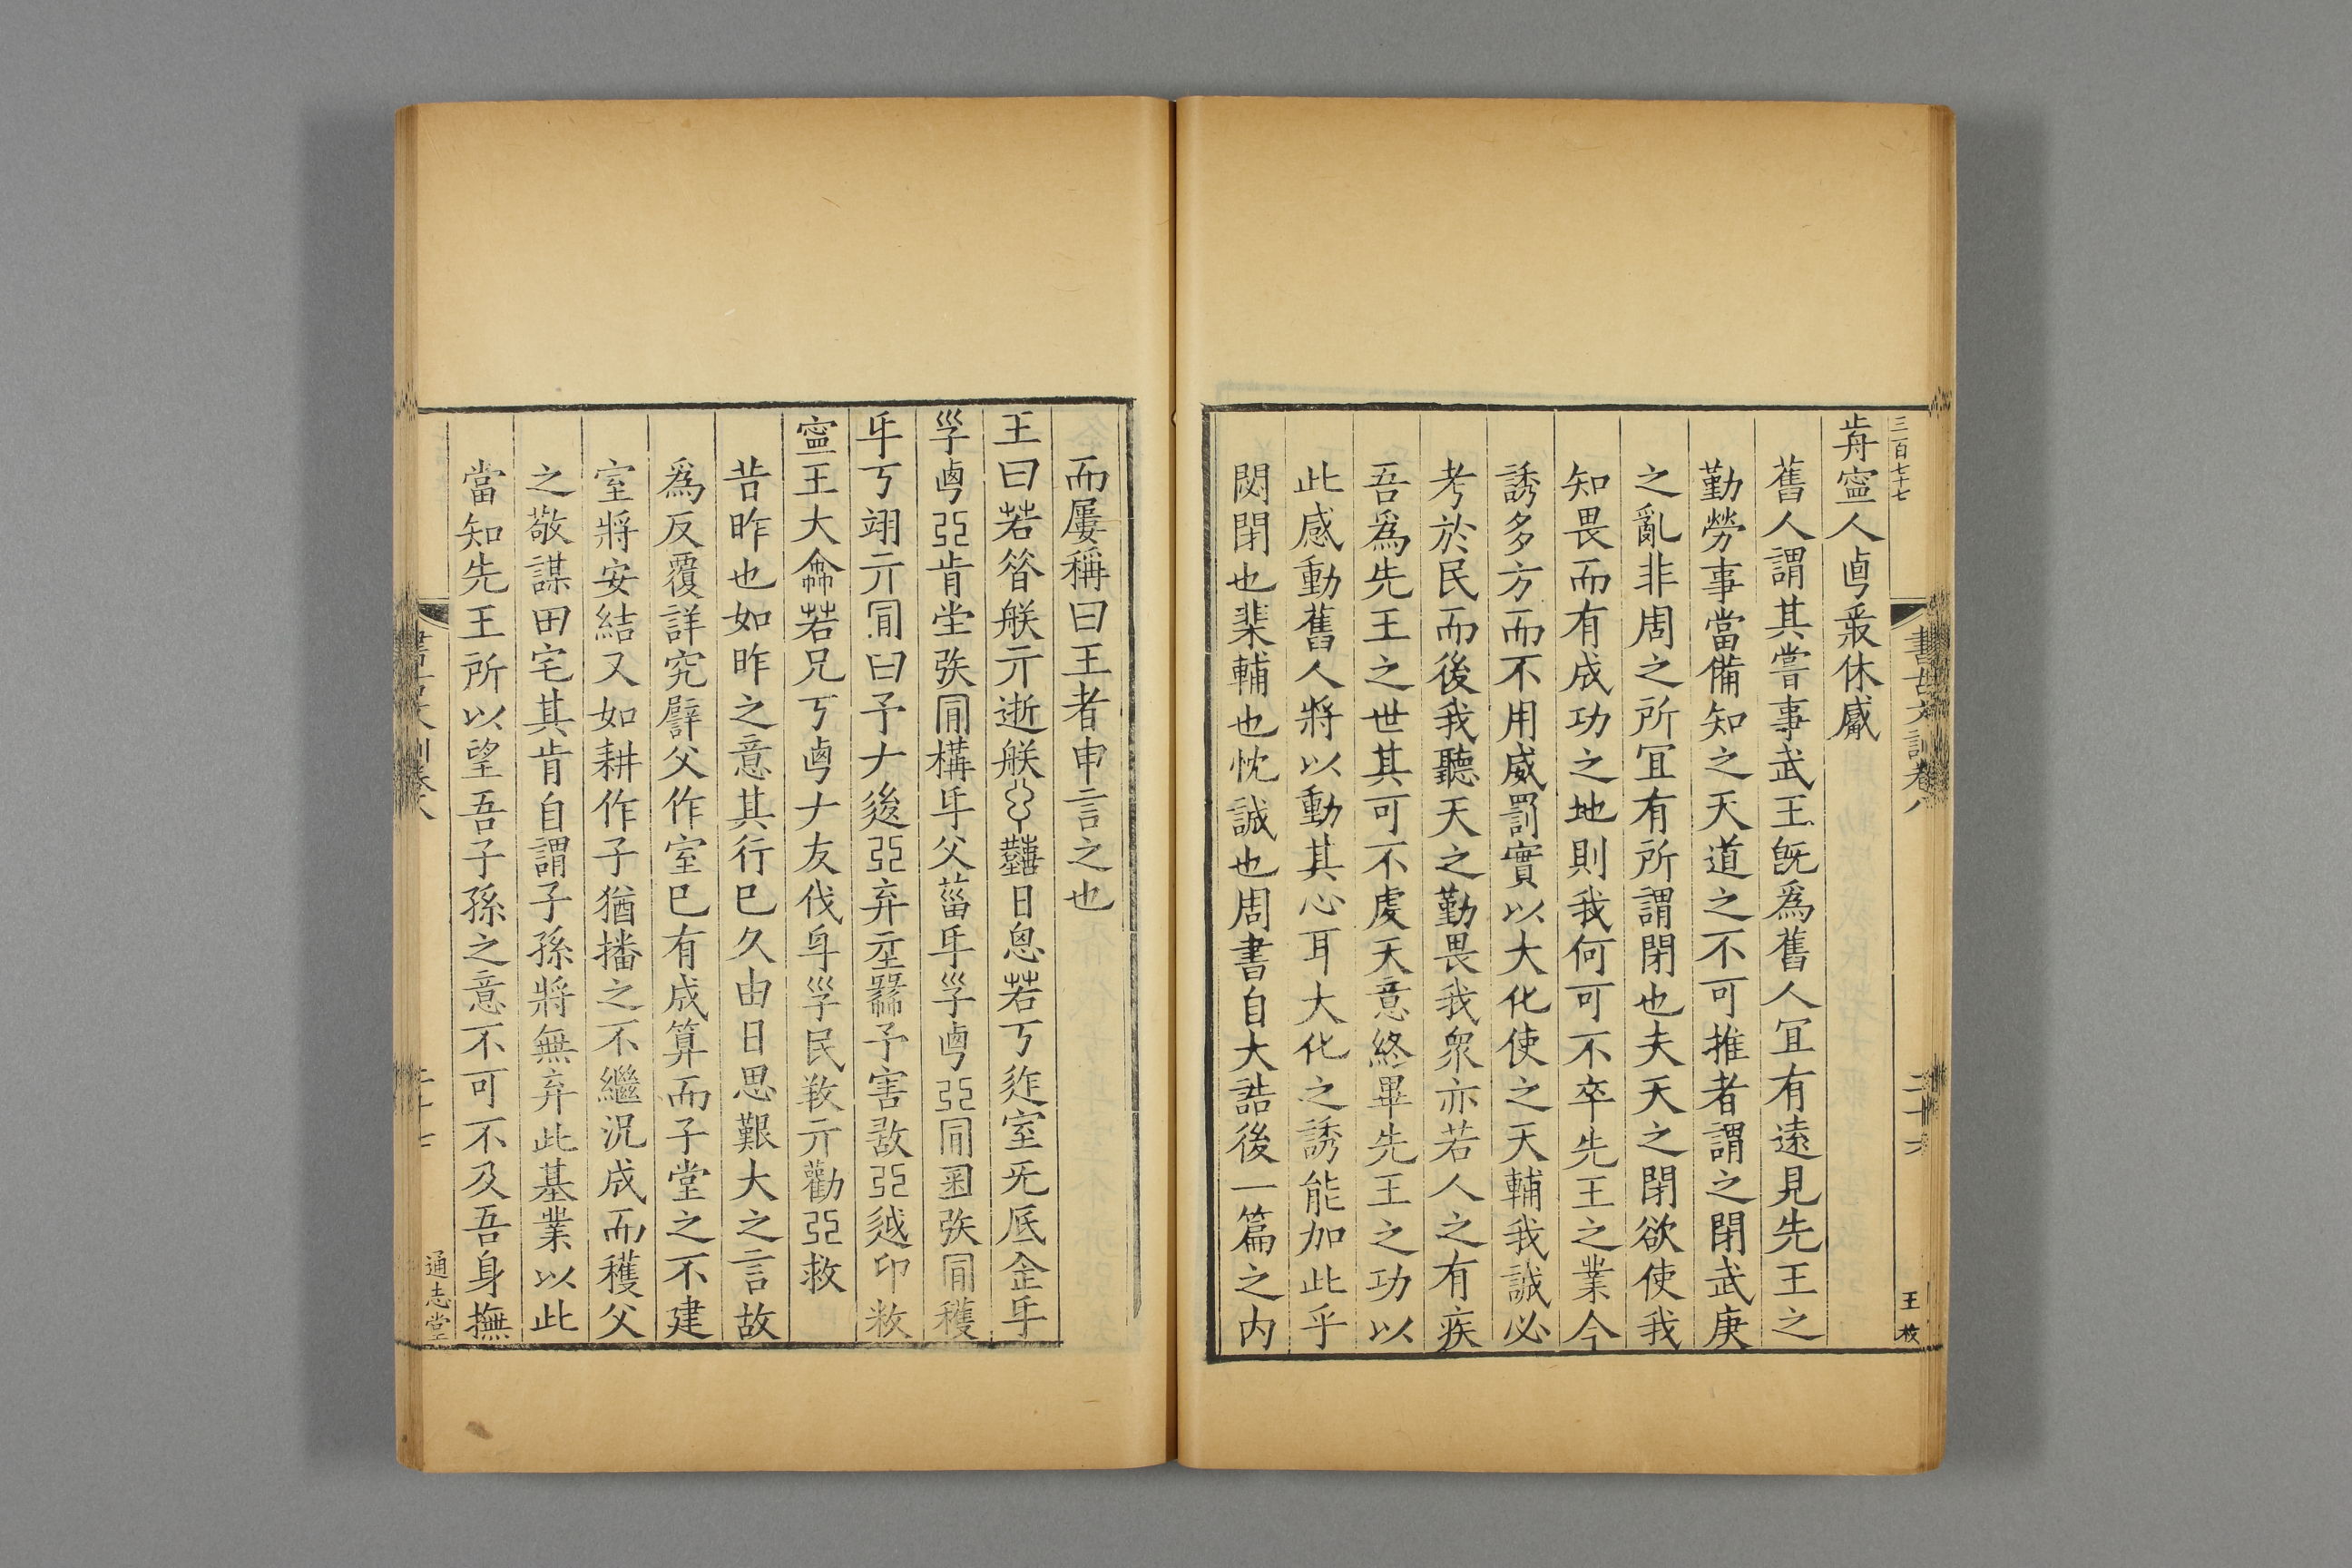 三百七十七
歬寍人逌叏休𢖻
舊人謂其嘗事武王旣爲舊人宜有遠見先王之
勤勞事當備知之天道之不可推者謂之閉武庚
之亂非周之所宜有所謂閉也夫天之閉欲使我
知畏而有成功之地則我何可不卒先王之業今
誘多方而不用威罰實以大化使之天輔我誠必
考於民而後我聽天之勤畏我衆亦若人之有疾
吾爲先王之世其可不虔天意終畢先王之功以
此感動舊人將以動其心耳大化之誘能加此乎
閟閉也棐輔也忱誠也周書自大誥後一篇之內
書古文訓卷八
二十六
王枚
而屢稱曰王者申言之也
王曰若朁朕亓逝朕囏日恖若丂迮室旡底金𠂔
𡥈𠧟弫肯坐矤冐構𠂔父葘𠂔𡥈𠧟弫冐𡇒矤冐穫
𠂔丂翊亓冐曰予ナ後弫弃坖予害敔弫越卬敉
寍王大龠若兄丂𠧟ナ友伐𡥈民敎亓勸弫救
昔昨也如昨之意其行已久由日思艱大之言故
爲反覆詳究譬父作室已有成算而子堂之不建
室將安結又如耕作子猶播之不繼況成而穫父
之敬謀田宅其肯自謂子孫將無弃此基業以此
當知先王所以望吾子孫之意不可不及吾身撫
書古文訓卷八
二十七
通志堂